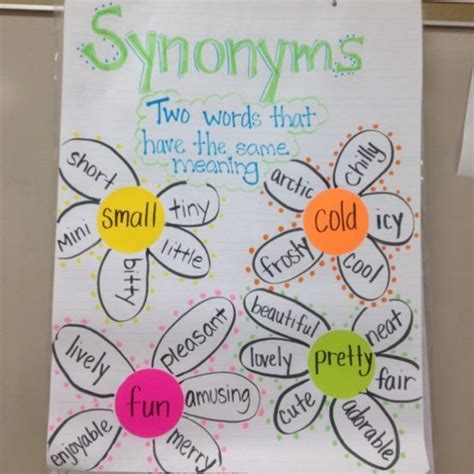 Synonyms
Two words that
have the same
meaning
short
tiny
small
mini
little
bitty
chilly
arctic
cold
icy
frosty
cool
pleasant
lively
fun
amusing
enjoyable
merry
beautiful
neat
lovely
pretty
fair
cute
adorable